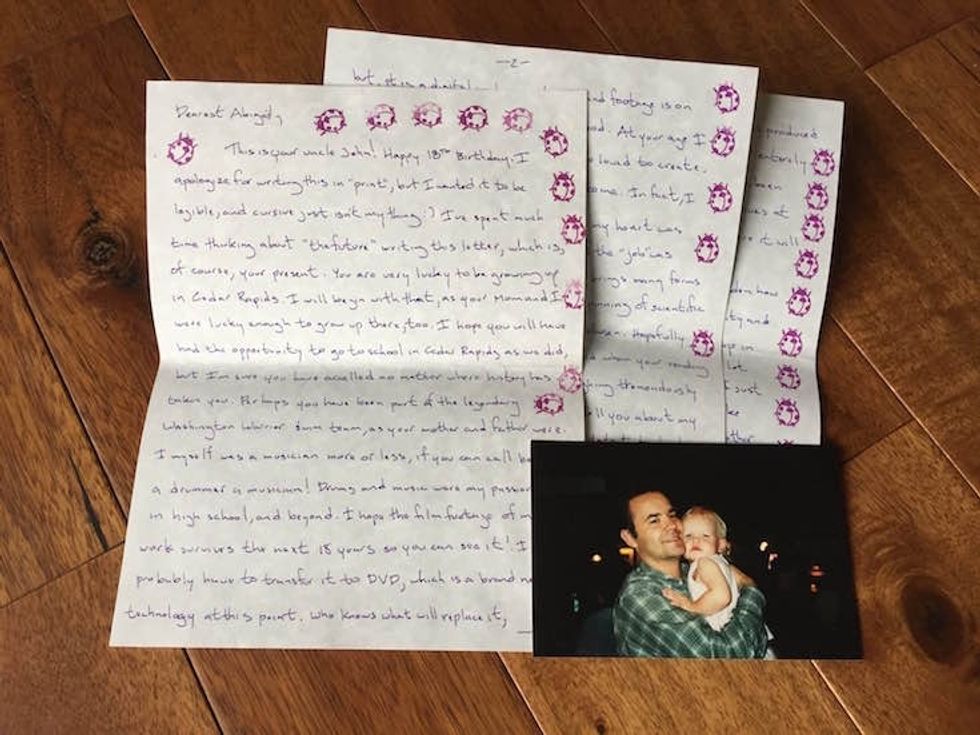 Dearest Abigail,
This is your uncle John! Happy 18th Birthday. I
apologize for writing this in "print", but I wanted it to be
legible, and cursive just isn't my thing :) I've spent much
time thinking about "the future" writing this letter, which is,
of course, your present. You are very lucky to be growing up
in Cedar Rapids. I will begin with that, as your Mom and I
were lucky enough to grow up there, too. I hope you will have
had the opportunity to go to school in Cedar Rapids as we did,
but I'm sure you have excelled no matter where history has
taken you. Perhaps you have been part of the legendary
Washington Warrior swim team, as your mother and father were.
I myself was a musician more or less, if you can call be
a drummer a musician! Drums and music were my passion
in high school, and beyond. I hope the film footage of m
work survives the next 18 years so you can see it! I
probably have to transfer it to DVD, which is a brand n
technology at this point. Who knows what will replace it,
-2-
but it is a digital
nd footage is on
od. At your age I
loved to create,
come. In fact, I
my heart was
the "job" was
brings many forms
nning of scientific
Hopefully
when your reading
king tremendously
ll you about my
produced
entirely
men
ues at
re it will
how
ty and
in
let
just
other